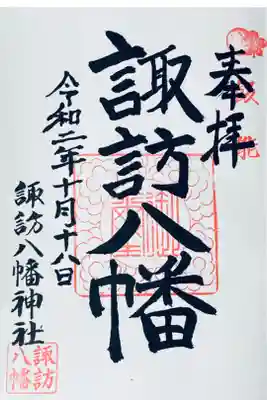 奉拝
諏訪八幡
令和二年十月十八日
諏訪八幡神社
諏訪
八幡